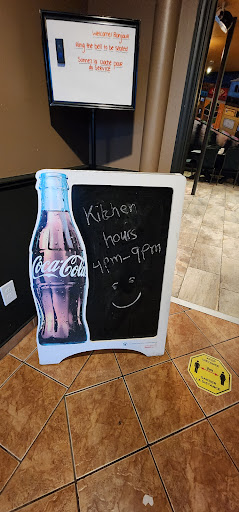 Welcome! Bonjour!
Ring the bell to be seated!
Sonnez la cloche pour
le service
Kitchen
hours
4pm-9pm
Coca-Cola